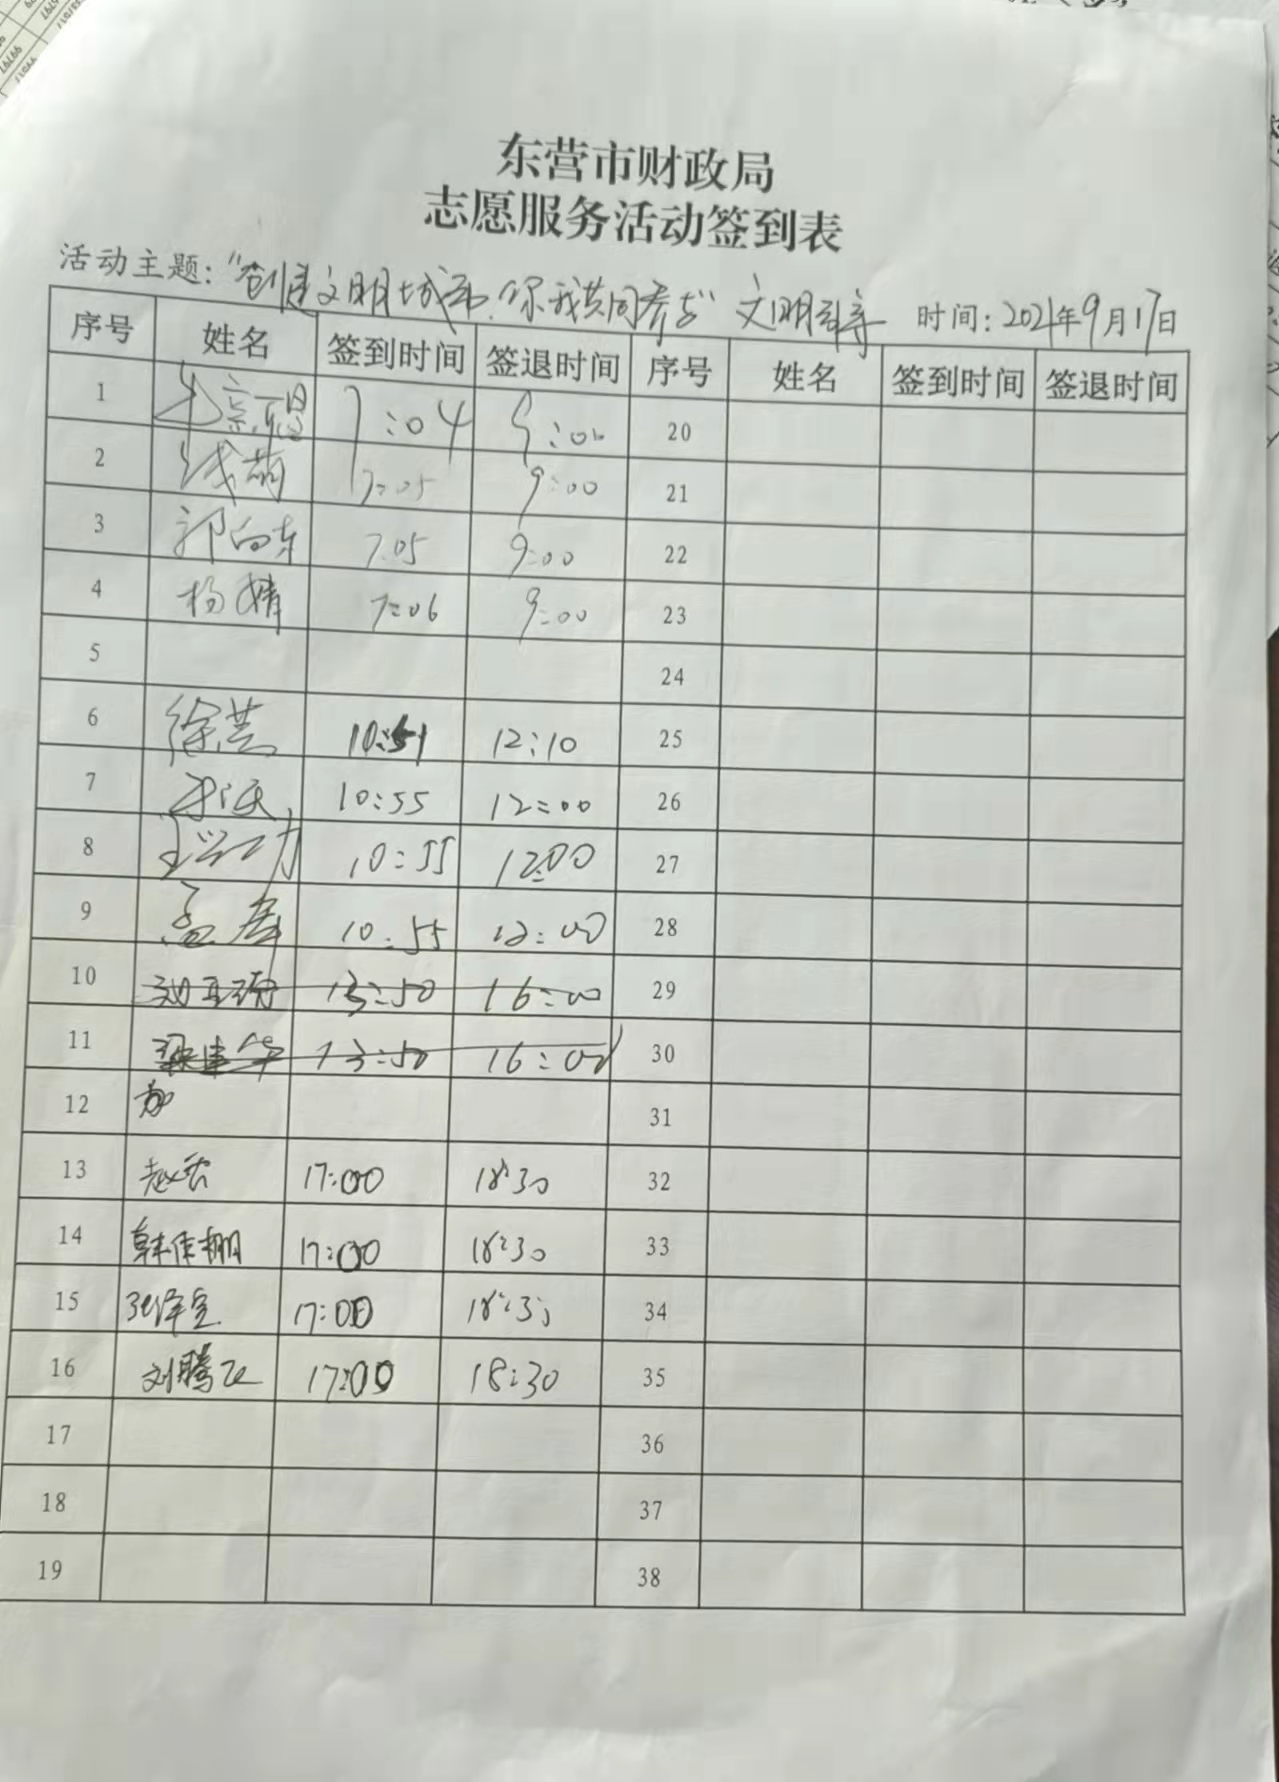 东营市财政局
志愿服务活动签到表
活动主题："创建文明城市，你我共同参与"文明引导 时间：2021年9月17日
序号 姓名 签到时间 签退时间 序号 姓名 签到时间 签退时间
1 7:04 9:00 20
2 7:05 9:00 21
3 郭向东 7:05 9:00 22
4 杨婧 7:06 9:00 23
5 24
6 徐芸 10:51 12:10 25
7 10:55 12:00 26
8 10:55 12:00 27
9 孟 10:55 12:00 28
10 13:50 16:00 29
11 梁建华 13:50 16:00 30
12 31
13 赵宏 17:00 18:30 32
14 韩佳栩 17:00 18:30 33
15 张泽宝 17:00 18:30 34
16 刘腾飞 17:00 18:30 35
17 36
18 37
19 38